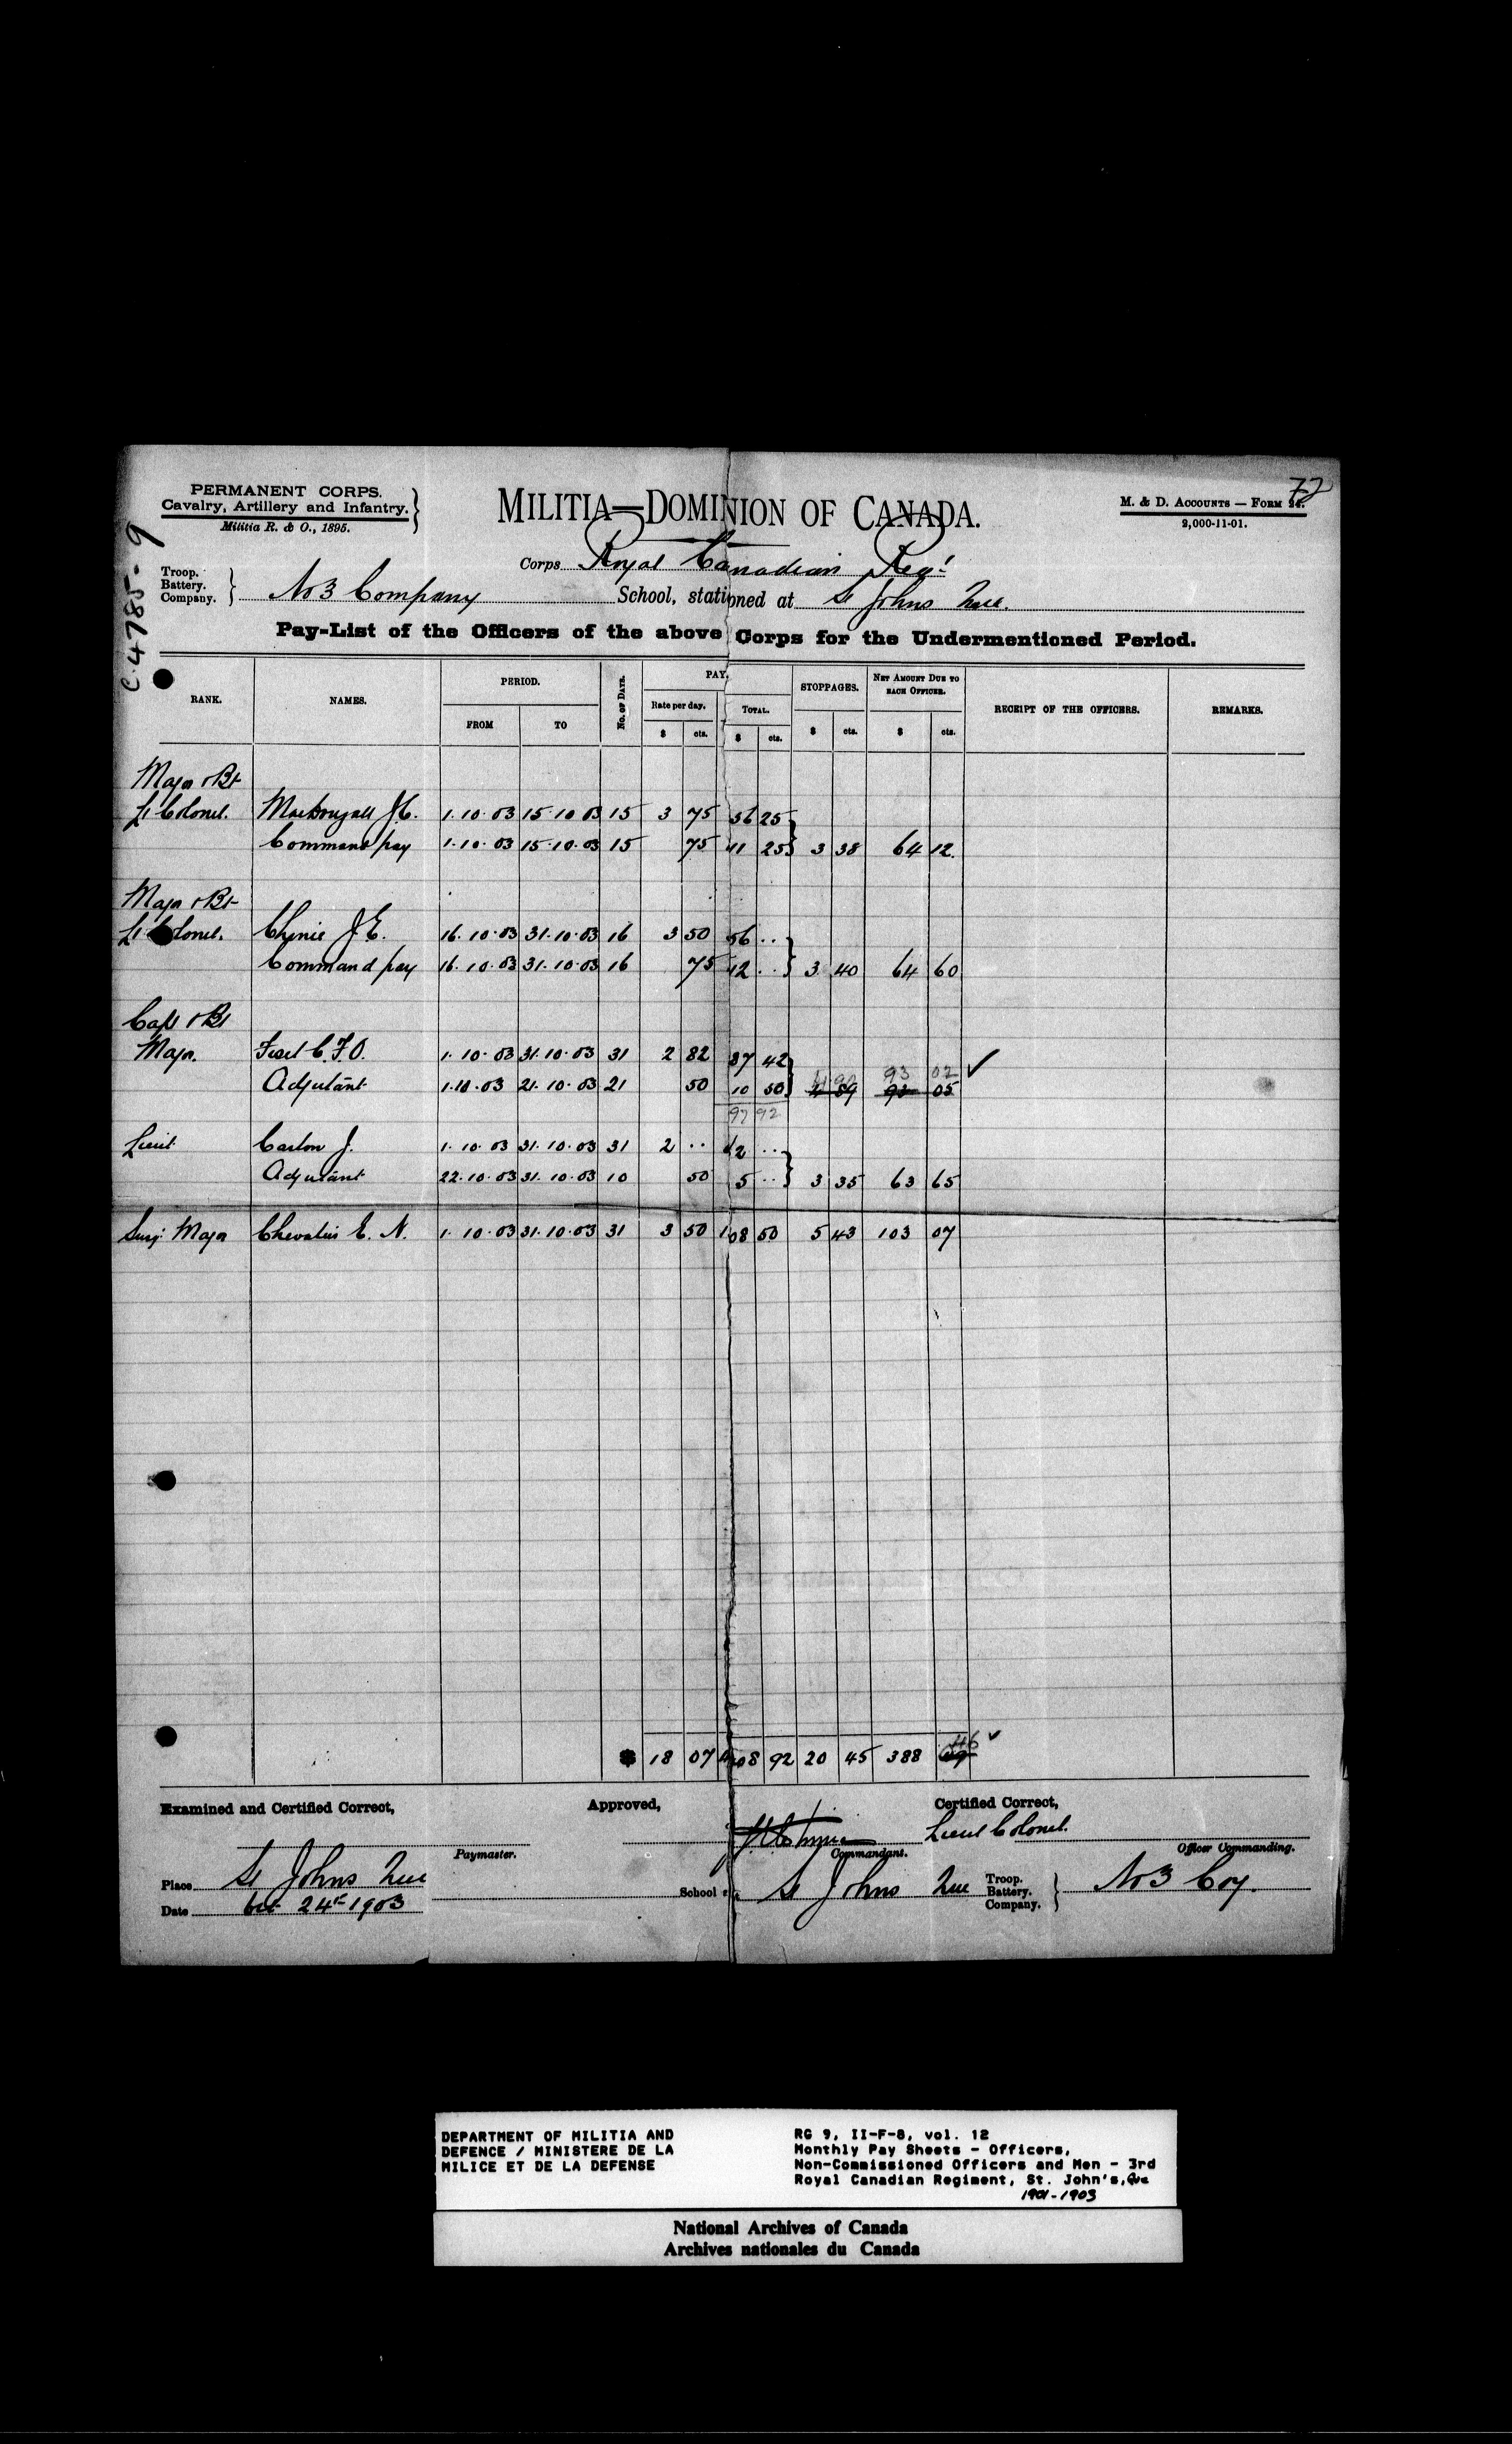 72
PERMANENT CORPS.
Cavalry, Artillery and Infantry.
Militia R. & O., 1895.
MILITIA—DOMINION OF CANADA.
M. & D. ACCOUNTS — FORM 24.
2,000-11-01.
C-4785-9
Corps Royal Canadian Regt
Troop.
Battery.
Company.
No 3 Company School, stationed at St Johns Que.
Pay-List of the Officers of the above Corps for the Undermentioned Period.
RANK. NAMES. PERIOD. No. OF DAYS. PAY. STOPPAGES. NET AMOUNT DUE TO EACH OFFICER. RECEIPT OF THE OFFICERS. REMARKS.
FROM TO Rate per day. TOTAL.
$ cts. $ cts. $ cts. $ cts.
Major & Bt
Lt Colonel. MacDougall J.C. 1.10.03 15.10.03 15 3 75 56 25
Command pay 1.10.03 15.10.03 15 75 11 25 3 38 64 12.
Major & Bt
Lt Colonel. Chinic J.E. 16.10.03 31.10.03 16 3 50 56 ..
Command pay 16.10.03 31.10.03 16 75 12 .. 3 40 64 60
Capt & Bt
Major. Fiset C.F.O. 1.10.03 31.10.03 31 2 82 87 42
93 02 ✓
Adjutant 1.10.03 21.10.03 21 50 10 50 4 89 93 05
97 92
Lieut Carlon J. 1.10.03 31.10.03 31 2 .. 62 ..
Adjutant 22.10.03 31.10.03 10 50 5 .. 3 35 63 65
Surg: Major Chevalier E. N. 1.10.03 31.10.03 31 3 50 108 50 5 43 103 07
46 ✓
18 07 408 92 20 45 388
Examined and Certified Correct, Approved, Certified Correct,
Lieut Colonel.
Paymaster. Commandant. Officer Commanding.
Place St Johns Que
School St Johns Que
Troop.
Battery.
Company.
No 3 Coy.
Date Oct 24th 1903
DEPARTMENT OF MILITIA AND
DEFENCE / MINISTERE DE LA
MILICE ET DE LA DEFENSE
RG 9, II-F-8, vol. 12
Monthly Pay Sheets - Officers,
Non-Commissioned Officers and Men - 3rd
Royal Canadian Regiment, St. John's, Que
1901-1903
National Archives of Canada
Archives nationales du Canada